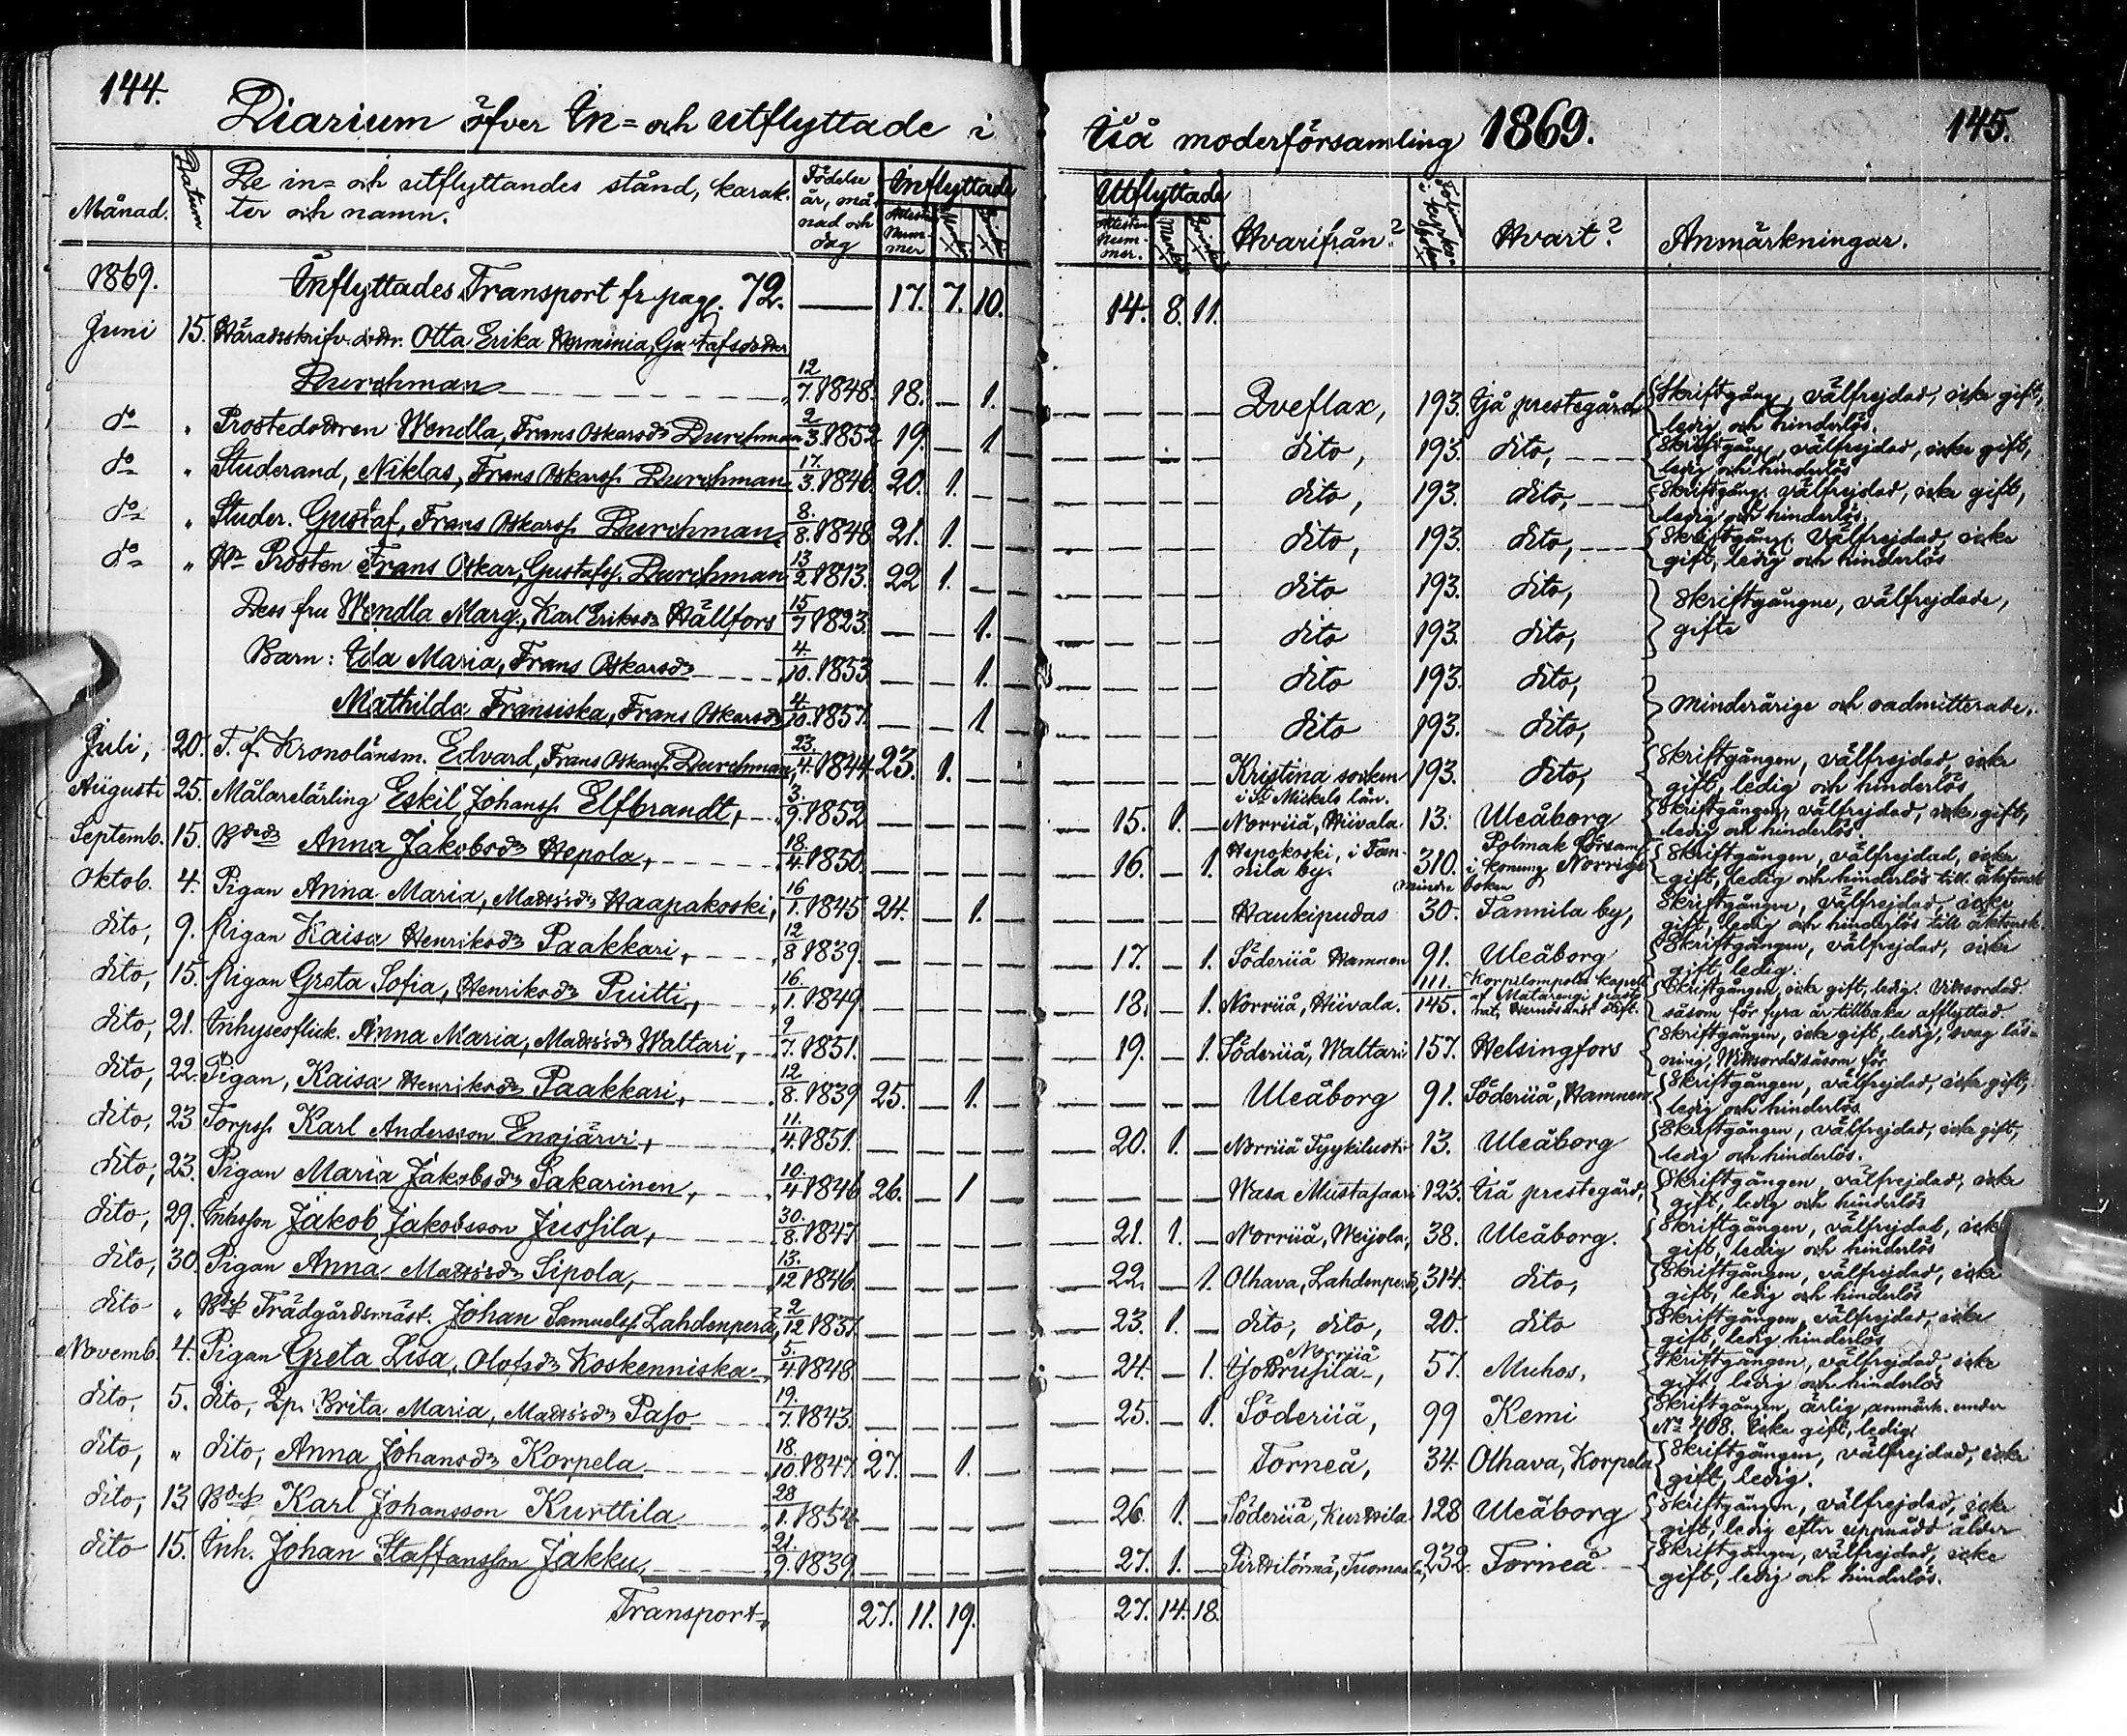 144.
Diarium öfver In= och utflyttade i
Månad.
Datum
De in= och utflyttandes stånd, karak-
ter och namn.
Födelse
år, må-
nad och
dag
Inflyttade
Attestens
Num-
mer
1869.
Inflyttades Transport fr. pag. 72. — 17. 7. 10.
Juni 15. Häradsskrifv. dottr. Otta Erika Herminia, Gustafsdotter
Durchman 12/7 1848. 18. — 1.
do „ Prostedottren Wendla, Frans Oskarsdr Durchman 2/3 1852 19. — 1
do „ Studerand, Niklas, Frans Oskarss. Durchman 17./3. 1846. 20. 1. —
do „ Studer. Gustaf, Frans Oskarss. Durchman 8./8. 1848 21. 1. —
do „ Hr Prosten Frans Oskar, Gustafss. Durchman 13/2 1813. 22 1. —
Dess fru Wendla Marg., Karl Eriksdr Hällfors 15/7 1823. — — 1.
Barn: Ida Maria, Frans Oskarsdr 4./10. 1853 — — 1.
Mathilda Fransiska, Frans Oskarsdr 4./10. 1857. — — 1
Juli, 20. T. f. Kronolänsm. Edvard, Frans Oskarss. Durchman, 23./4. 1844 23. 1. —
Augusti 25. Målarelärling Eskil Johanss. Elfbrandt, 3./9. 1852 — — —
Septemb. 15. Bdedr Anna Jakobsdr Hepola, 18./4. 1850. — — —
Oktob. 4. Pigan Anna Maria, Mattsdr Haapakoski, 16/1. 1845 24. — 1.
dito, 9. Pigan Kaisa Henriksdr Paakkari, 12/8 1839. — — —
dito, 15. Pigan Greta Sofia, Henriksdr Puitti, 16./1. 1849 — — —
dito, 21. Inhyseflick. Anna Maria, Mattsdr Waltari, 9/7. 1851. — — —
dito, 22. Pigan, Kaisa Henriksdr Paakkari, 12/8. 1839 25. — 1. —
dito, 23 Torpss. Karl Andersson Enojärvi, 11./4. 1851. — — —
dito, 23. Pigan Maria Jakobsdr Sakarinen, 10./4 1846 26. — 1
dito, 29. Inhsson Jakob Jakobsson Jussila, 30./8. 1847. — — —
dito, 30. Pigan Anna Mattsdr Sipola, 13./12 1846. — — —
dito „ Bdes Trädgårdsmäst. Johan Samuelss. Lahdenperä, 2/12 1837. — — —
Novemb. 4. Pigan Greta Lisa, Olofsdr Koskenniska 5./4. 1848. — — —
dito, 5. dito, Brita Maria, Mattsdr Paso 19./7. 1843. — — —
dito, „ dito, Anna Johansdr Korpela 18./10. 1847. 27. — 1. —
dito, 13 Bdes Karl Johansson Kurttila 28/1. 1854 — — —
dito 15. Inh. Johan Staffansson Jakku, 21./9. 1839 — — —
Transport, 27. 11. 19.
Iiå moderförsamling 1869.
145.
Utflyttade
Attestens
Num-
mer.
Hvarifrån?
Hvart?
Anmärkningar.
14. 8. 11.
Qveflax, 193. Ijå prestegård {Skriftgång., välfrejdad, icke gift,
ledig och hinderlös.
dito, 193. dito, {Skriftgång., välfrejdad, icke gift,
ledig och hinderlös
dito, 193. dito, {Skriftgång. välfrejdad, icke gift,
ledig och hinderlös.
dito, 193. dito, {Skriftgång. Välfrejdad, icke
gift, ledig och hinderlös
dito 193. dito,
Skriftgångne, välfrejdade,
dito 193. dito,
gifte
dito 193. dito,
Minderårige och oadmitterade.
dito 193. dito,
Kristina socken 193. dito, {Skriftgången, välfrejdad, icke
i St Mickels län. gift, ledig och hinderlös
15. 1. — Norriiå, Hiivala. 13. Uleåborg {Skriftgången, välfrejdad, icke gift,
ledig och hinderlös.
16. — 1. Hepokoski, i Tan- 310. Polmak Försam. {Skriftgången, välfrejdad, icke
nila by. i konung. Norrige gift, ledig och hinderlös till äktensk.
Mindre boken
Haukipudas 30. Tannila by, {Skriftgången, välfrejdad, icke
gift, ledig och hinderlös till äktensk.
17. — 1. Söderiiå Hamnen 91. Uleåborg {Skriftgången, välfrejdad, icke
gift, ledig.
18. — 1. Norriiå, Hiivala. 111./145. Korpilompolo kapell {Skriftgången, icke gift, ledig. Vitsordad
af Matarengi pasto-
rat, Hernösands stift. såsom för fyra år tillbaka afflyttad
19. — 1. Söderiiå, Waltari 157. Helsingfors {Skriftgången, icke gift, ledig, svag läs-
ning,
Uleåborg 91. Söderiiå, Hamnen. {Skriftgången, välfrejdad, icke gift,
ledig och hinderlös
20. 1. — Norriiå 13. Uleåborg {Skriftgången, välfrejdad, icke gift,
ledig och hinderlös.
Wasa Mustasaari 123. Iiå prestegård, {Skriftgången, välfrejdad, icke
gift, ledig och hinderlös
21. 1. — Norriiå, Weijola, 38. Uleåborg. {Skriftgången, välfrejdad, icke
gift, ledig och hinderlös
22. — 1. Olhava, Lahdenperä, 314. dito, {Skriftgången, välfrejdad, icke
gift, ledig och hinderlös
23. 1. — dito, dito, 20. dito {Skriftgången, välfrejdad, icke
gift, ledig hinderlös
Norriiå
24. — 1. 57. Muhos, {Skriftgången, välfrejdad, icke
gift, ledig och hinderlös
25. — 1. Söderiiå, 99 Kemi {Skriftgången, ärlig, anmärk. under
No 408. Icke gift, ledig.
Torneå, 34. Olhava, Korpela {Skriftgången, välfrejdad, icke
gift, ledig.
26. 1. — Söderiiå, Kurttila 128 Uleåborg {Skriftgången, välfrejdad, icke
gift, ledig efter uppnådd ålder
27. 1. — Pirttitörmä, Tuomaala, 232. Torneå {Skriftgången, välfrejdad, icke
gift, ledig och hinderlös.
27. 14. 18.